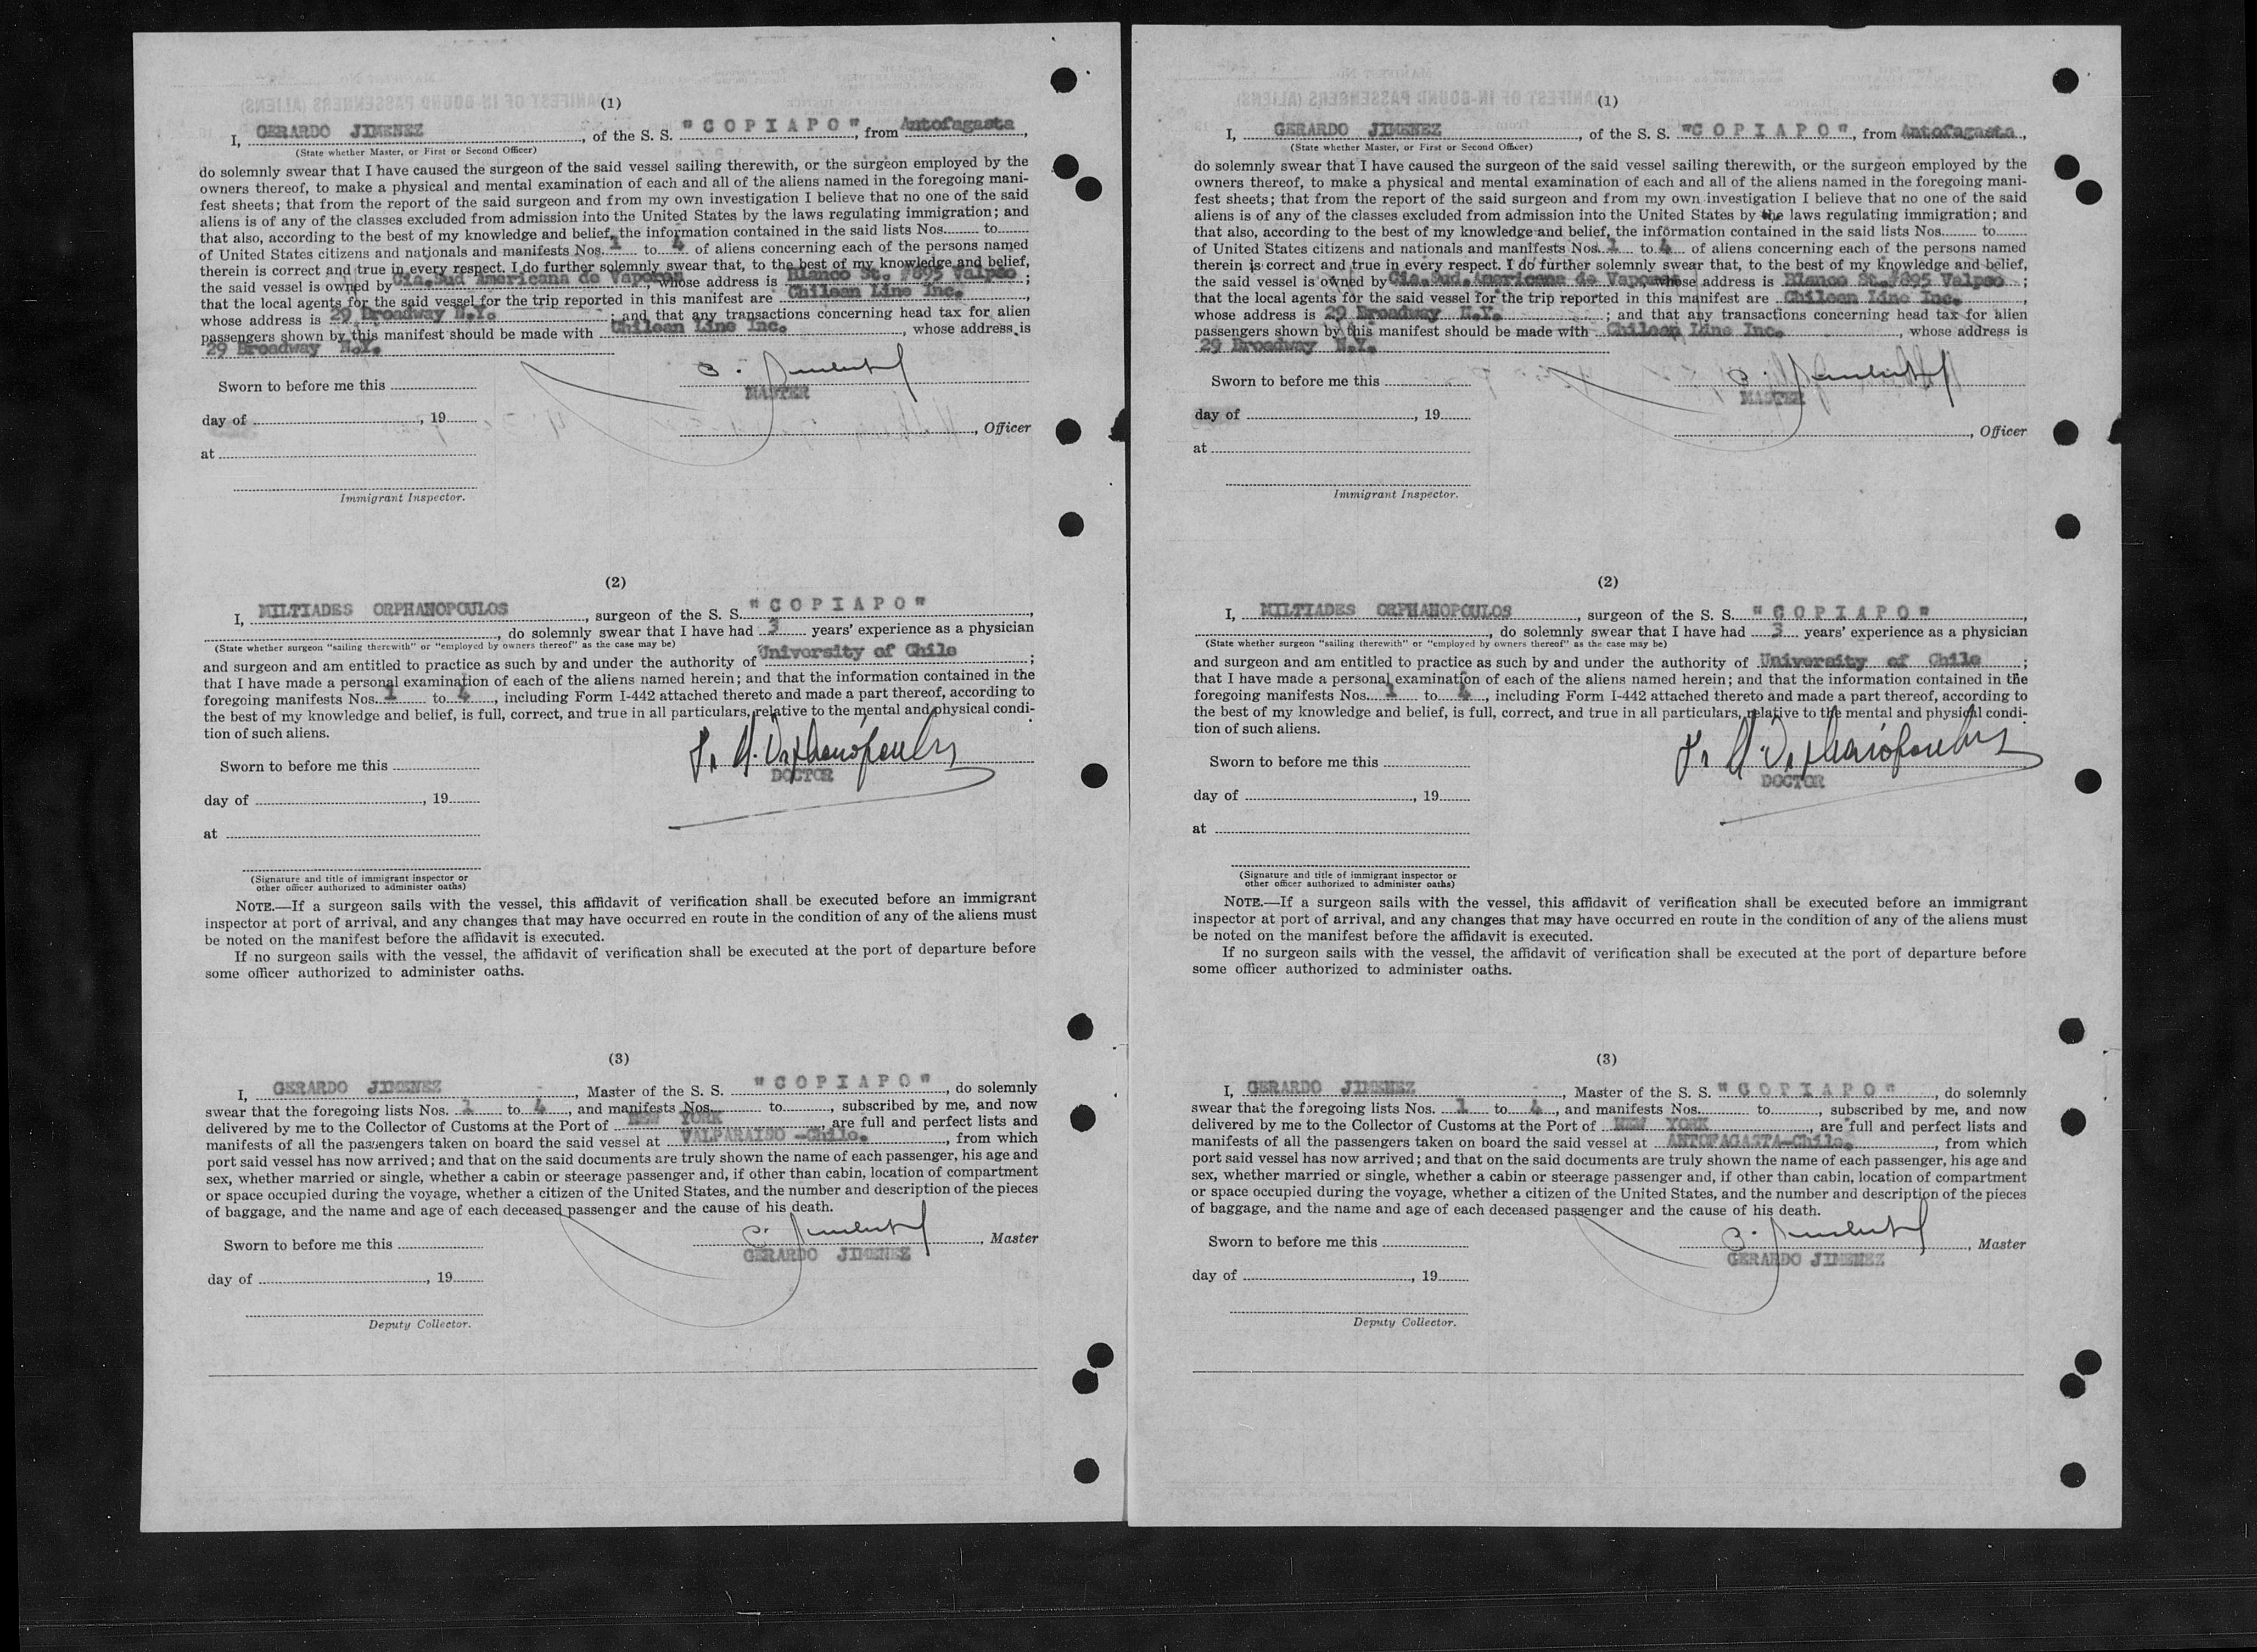 (1)
I, GERARDO JIMENEZ, of the S. S. "COPIAPO", from Antofagasta,
(State whether Master, or First or Second Officer)
do solemnly swear that I have caused the surgeon of the said vessel sailing therewith, or the surgeon employed by the
owners thereof, to make a physical and mental examination of each and all of the aliens named in the foregoing mani-
fest sheets; that from the report of the said surgeon and from my own investigation I believe that no one of the said
aliens is of any of the classes excluded from admission into the United States by the laws regulating immigration; and
that also, according to the best of my knowledge and belief, the information contained in the said lists Nos. to
of United States citizens and nationals and manifests Nos. 1 to 4 of aliens concerning each of the persons named
therein is correct and true in every respect. I do further solemnly swear that, to the best of my knowledge and belief,
the said vessel is owned by Cia.Sud Americana de Vapores whose address is Blanco St. #895 Valpso;
that the local agents for the said vessel for the trip reported in this manifest are Chilean Line Inc.,
whose address is 29 Broadway N.Y.; and that any transactions concerning head tax for alien
passengers shown by this manifest should be made with Chilean Line Inc., whose address is
29 Broadway N.Y.
Sworn to before me this
MASTER
day of , 19
, Officer
at
Immigrant Inspector.
(2)
I, MILTIADES ORPHANOPOULOS, surgeon of the S. S. "COPIAPO",
, do solemnly swear that I have had 3 years' experience as a physician
(State whether surgeon "sailing therewith" or "employed by owners thereof" as the case may be)
and surgeon and am entitled to practice as such by and under the authority of University of Chile;
that I have made a personal examination of each of the aliens named herein; and that the information contained in the
foregoing manifests Nos. 1 to 4, including Form I-442 attached thereto and made a part thereof, according to
the best of my knowledge and belief, is full, correct, and true in all particulars, relative to the mental and physical condi-
tion of such aliens.
Sworn to before me this
Orphanópoulos
DOCTOR
day of , 19
at
(Signature and title of immigrant inspector or
other officer authorized to administer oaths)
NOTE.—If a surgeon sails with the vessel, this affidavit of verification shall be executed before an immigrant
inspector at port of arrival, and any changes that may have occurred en route in the condition of any of the aliens must
be noted on the manifest before the affidavit is executed.
If no surgeon sails with the vessel, the affidavit of verification shall be executed at the port of departure before
some officer authorized to administer oaths.
(3)
I, GERARDO JIMENEZ, Master of the S. S. "COPIAPO", do solemnly
swear that the foregoing lists Nos. 1 to 4, and manifests Nos. to , subscribed by me, and now
delivered by me to the Collector of Customs at the Port of NEW YORK, are full and perfect lists and
manifests of all the passengers taken on board the said vessel at VALPARAISO -Chile., from which
port said vessel has now arrived; and that on the said documents are truly shown the name of each passenger, his age and
sex, whether married or single, whether a cabin or steerage passenger and, if other than cabin, location of compartment
or space occupied during the voyage, whether a citizen of the United States, and the number and description of the pieces
of baggage, and the name and age of each deceased passenger and the cause of his death.
Sworn to before me this
, Master
GERARDO JIMENEZ
day of , 19
Deputy Collector.
(1)
I, GERARDO JIMENEZ, of the S. S. "COPIAPO", from Antofagasta,
(State whether Master, or First or Second Officer)
do solemnly swear that I have caused the surgeon of the said vessel sailing therewith, or the surgeon employed by the
owners thereof, to make a physical and mental examination of each and all of the aliens named in the foregoing mani-
fest sheets; that from the report of the said surgeon and from my own investigation I believe that no one of the said
aliens is of any of the classes excluded from admission into the United States by the laws regulating immigration; and
that also, according to the best of my knowledge and belief, the information contained in the said lists Nos. to
of United States citizens and nationals and manifests Nos. 1 to 4 of aliens concerning each of the persons named
therein is correct and true in every respect. I do further solemnly swear that, to the best of my knowledge and belief,
the said vessel is owned by Cia.Sud.Americana de Vapores whose address is Blanco St.#895 Valpso;
that the local agents for the said vessel for the trip reported in this manifest are Chilean Line Inc.,
whose address is 29 Broadway N.Y.; and that any transactions concerning head tax for alien
passengers shown by this manifest should be made with Chilean Line Inc., whose address is
29 Broadway N.Y.
Sworn to before me this
MASTER
day of , 19
, Officer
at
Immigrant Inspector.
(2)
I, MILTIADES ORPHANOPOULOS, surgeon of the S. S. "COPIAPO",
, do solemnly swear that I have had 3 years' experience as a physician
(State whether surgeon "sailing therewith" or "employed by owners thereof" as the case may be)
and surgeon and am entitled to practice as such by and under the authority of University of Chile;
that I have made a personal examination of each of the aliens named herein; and that the information contained in the
foregoing manifests Nos. 1 to 4, including Form I-442 attached thereto and made a part thereof, according to
the best of my knowledge and belief, is full, correct, and true in all particulars, relative to the mental and physical condi-
tion of such aliens.
Sworn to before me this
Orphanópoulos
DOCTOR
day of , 19
at
(Signature and title of immigrant inspector or
other officer authorized to administer oaths)
NOTE.—If a surgeon sails with the vessel, this affidavit of verification shall be executed before an immigrant
inspector at port of arrival, and any changes that may have occurred en route in the condition of any of the aliens must
be noted on the manifest before the affidavit is executed.
If no surgeon sails with the vessel, the affidavit of verification shall be executed at the port of departure before
some officer authorized to administer oaths.
(3)
I, GERARDO JIMENEZ, Master of the S. S. "COPIAPO", do solemnly
swear that the foregoing lists Nos. 1 to 4, and manifests Nos. to , subscribed by me, and now
delivered by me to the Collector of Customs at the Port of NEW YORK, are full and perfect lists and
manifests of all the passengers taken on board the said vessel at ANTOFAGASTA-Chile., from which
port said vessel has now arrived; and that on the said documents are truly shown the name of each passenger, his age and
sex, whether married or single, whether a cabin or steerage passenger and, if other than cabin, location of compartment
or space occupied during the voyage, whether a citizen of the United States, and the number and description of the pieces
of baggage, and the name and age of each deceased passenger and the cause of his death.
Sworn to before me this
, Master
GERARDO JIMENEZ
day of , 19
Deputy Collector.